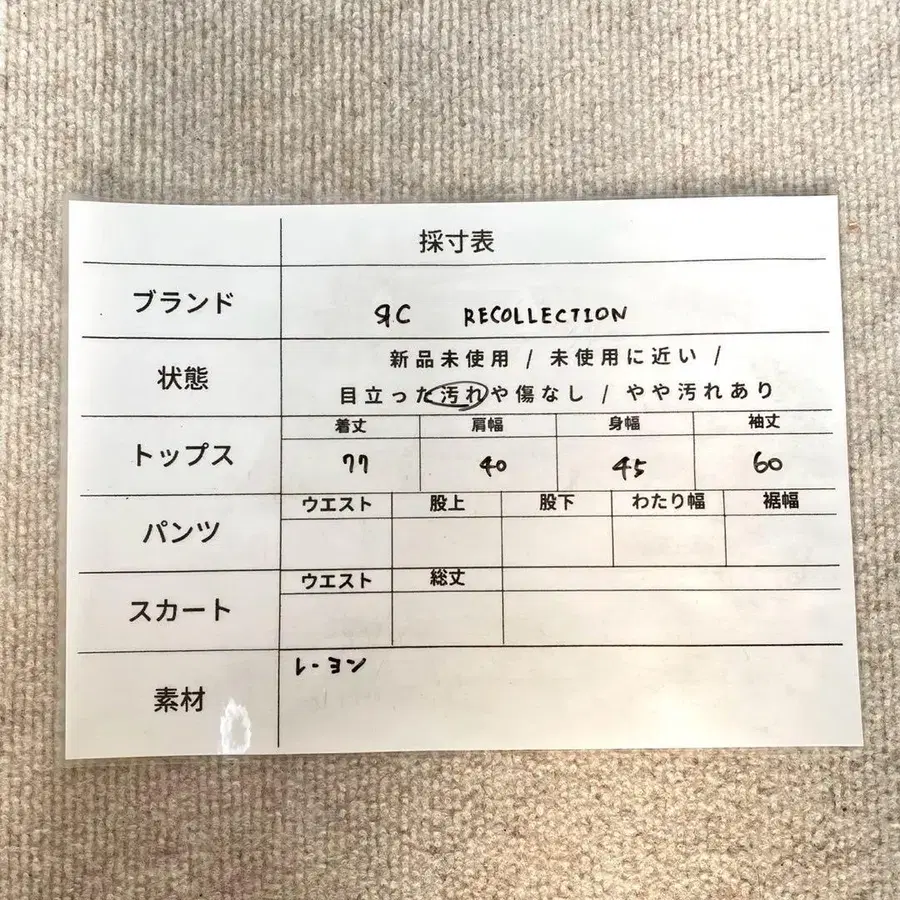 採寸表
ブランド
ЯC RECOLLECTION
状態
新品未使用 / 未使用に近い /
目立った汚れや傷なし / やや汚れあり
トップス
着丈 肩幅 身幅 袖丈
77 40 45 60
パンツ
ウエスト 股上 股下 わたり幅 裾幅
スカート
ウエスト 総丈
素材
レーヨン